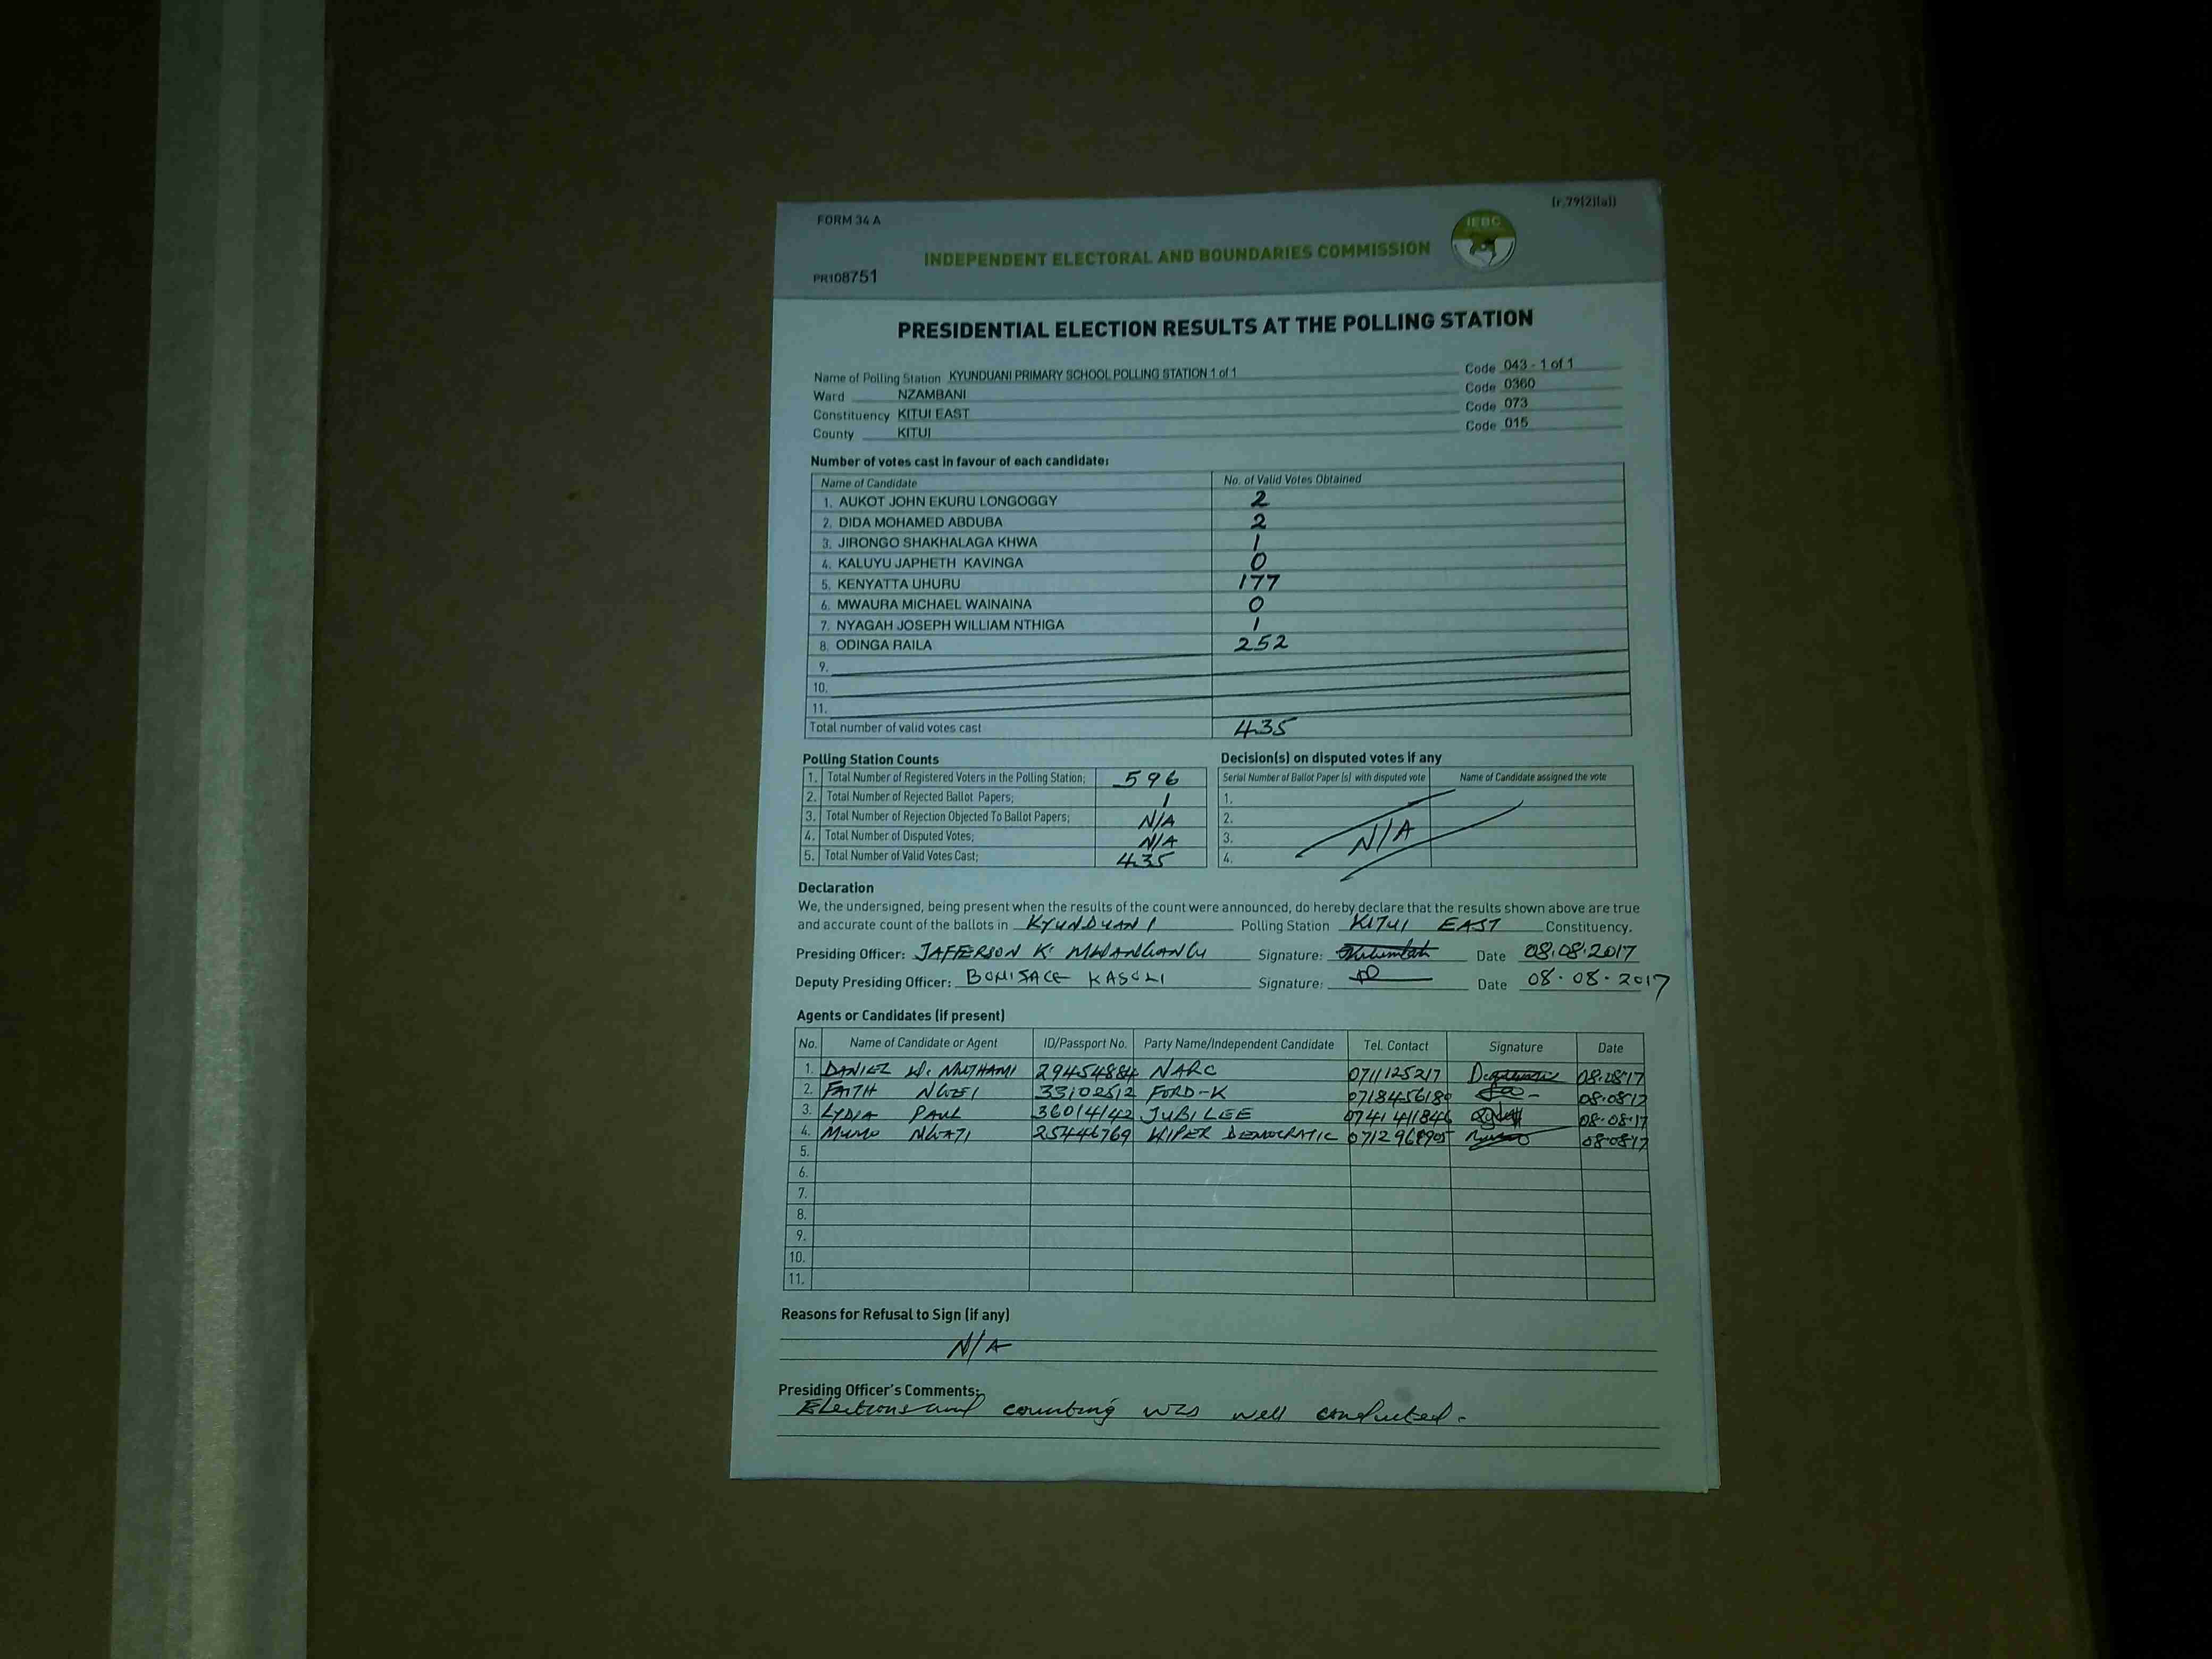 FORM 34 A
(r.79(2)(a))
IEBC
INDEPENDENT ELECTORAL AND BOUNDARIES COMMISSION
PR108751
PRESIDENTIAL ELECTION RESULTS AT THE POLLING STATION
Name of Polling Station KYUNDUANI PRIMARY SCHOOL POLLING STATION 1 of 1 Code 043 - 1 of 1
Ward NZAMBANI Code 0360
Constituency KITUI EAST Code 073
County KITUI Code 015
Number of votes cast in favour of each candidate:
Name of Candidate No. of Valid Votes Obtained
1. AUKOT JOHN EKURU LONGOGGY 2
2. DIDA MOHAMED ABDUBA 2
3. JIRONGO SHAKHALAGA KHWA 1
4. KALUYU JAPHETH KAVINGA 0
5. KENYATTA UHURU 177
6. MWAURA MICHAEL WAINAINA 0
7. NYAGAH JOSEPH WILLIAM NTHIGA 1
8. ODINGA RAILA 252
9.
10.
11.
Total number of valid votes cast 435
Polling Station Counts
1. Total Number of Registered Voters in the Polling Station; 596
2. Total Number of Rejected Ballot Papers; 1
3. Total Number of Rejection Objected To Ballot Papers; N/A
4. Total Number of Disputed Votes; N/A
5. Total Number of Valid Votes Cast; 435
Decision(s) on disputed votes if any
Serial Number of Ballot Paper (s) with disputed vote Name of Candidate assigned the vote
1.
2.
3. N/A
4.
Declaration
We, the undersigned, being present when the results of the count were announced, do hereby declare that the results shown above are true
and accurate count of the ballots in KYUNDUANI Polling Station KITUI EAST Constituency.
Presiding Officer: JAFFERSON K. MWANGANGU Signature: Date 08.08.2017
Deputy Presiding Officer: BONIFACE KASULI Signature: Date 08.08.2017
Agents or Candidates (if present)
No. Name of Candidate or Agent ID/Passport No. Party Name/Independent Candidate Tel. Contact Signature Date
1. DANIEL 29454884 NARC 0711125217 08.0817
2. FAITH 33102512 FORD-K 08.0817
3. LYDIA PAUL 36014142 JUBILEE 0741411846 08.08.17
4. MUMO 25446769 WIPER DEMOCRATIC 08.08.17
5.
6.
7.
8.
9.
10.
11.
Reasons for Refusal to Sign (if any)
N/A
Presiding Officer's Comments:
Elections and counting was well conducted.